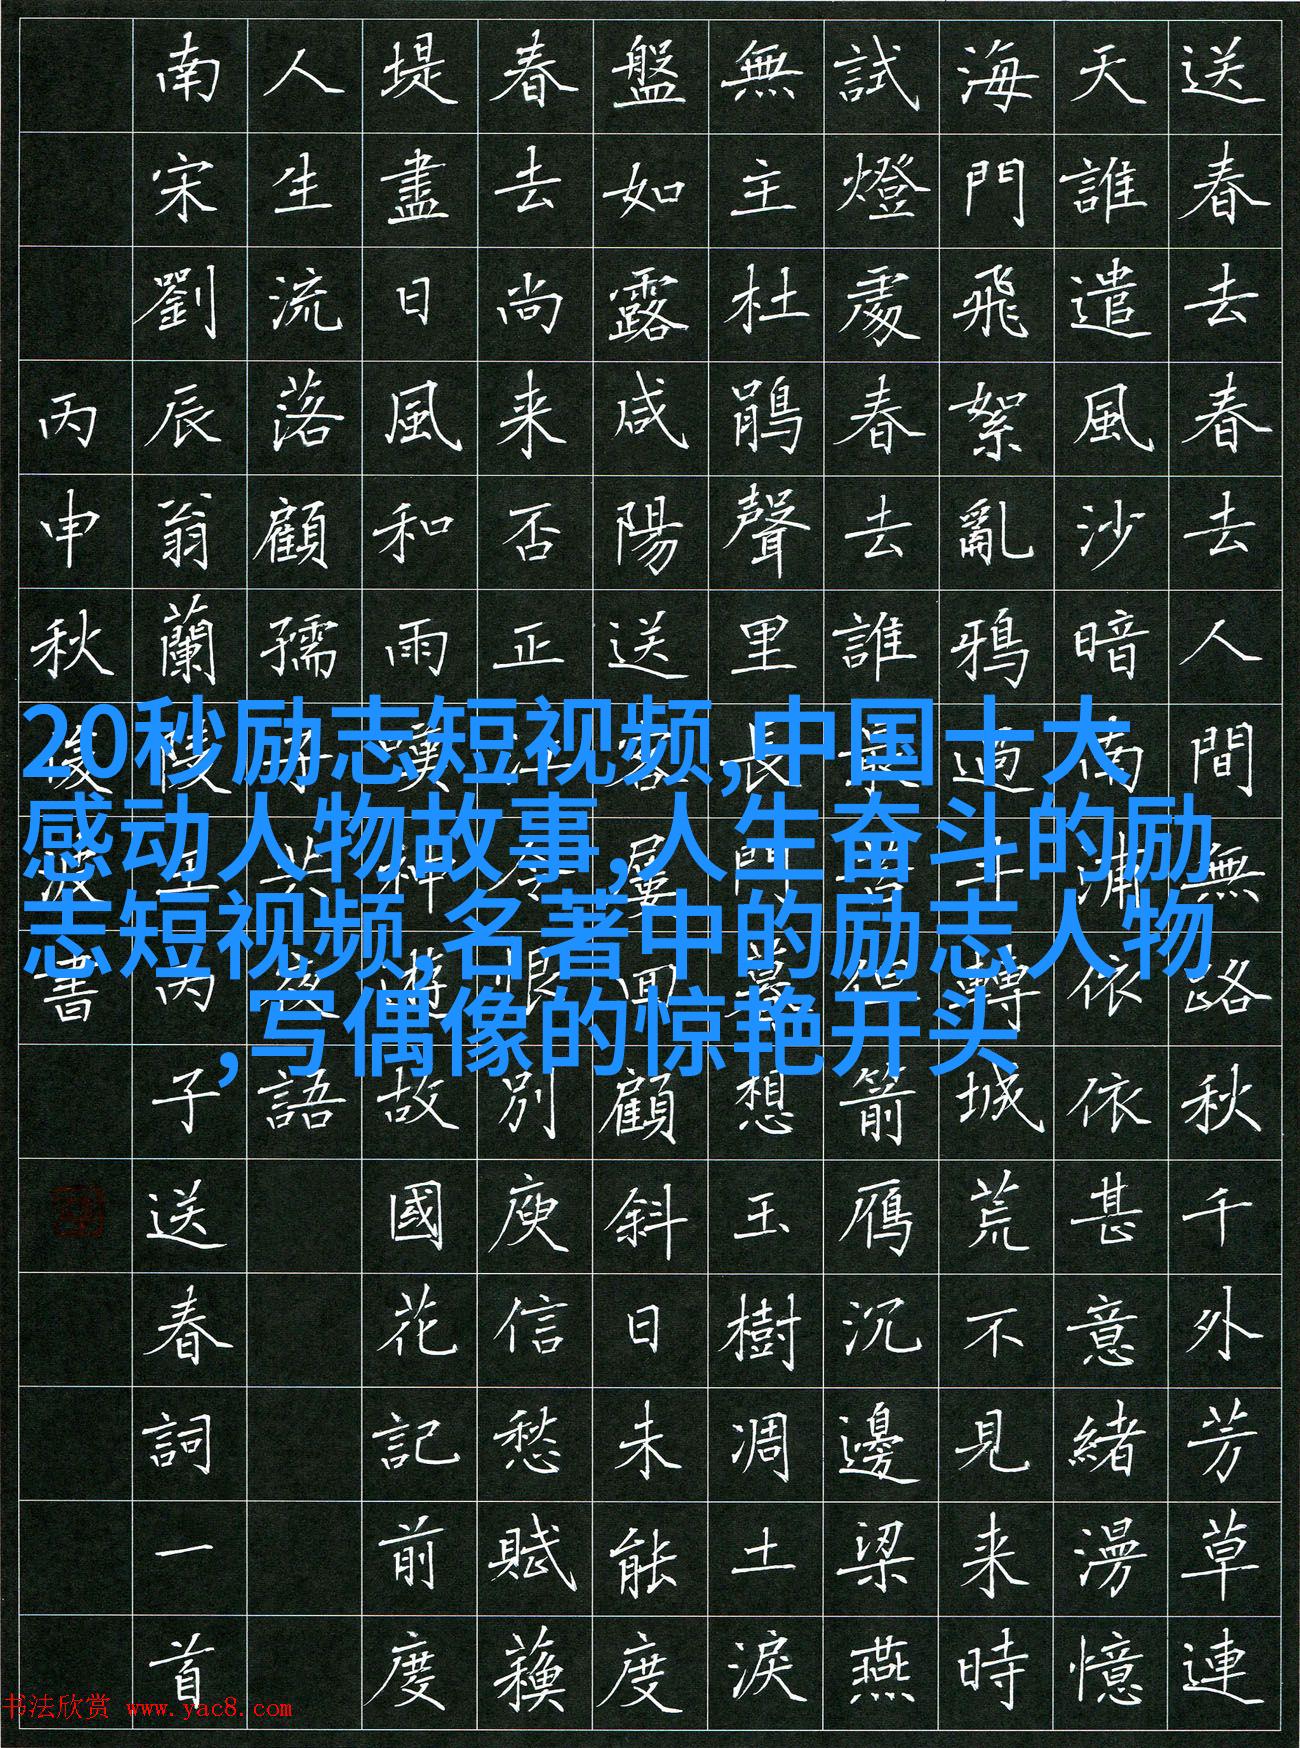 送春去春去人間無路秋千外芳草連
天誰遣風沙暗南浦依依甚意緒漫憶
海門飛絮亂鴉過斗轉城荒不見来時
試燈處春去誰最苦但箭雁沉邊梁燕
無主杜鵑聲里長門暮想玉樹凋土淚
盤如露咸陽送客屢回顧斜日未能度
春去尚来否正江令恨別庾信愁賦蘓
堤盡日風和雨嘆神遊故國花記前度
人生流落顧孺子共夜語
南宋劉辰翁蘭陵王丙子送春詞一首
丙申秋書
20秒励志短视频,中国十大
感动人物故事,人生奋斗的励
志短视频,名著中的励志人物
,写偶像的惊艳开头
书法欣赏 www.yac8.com